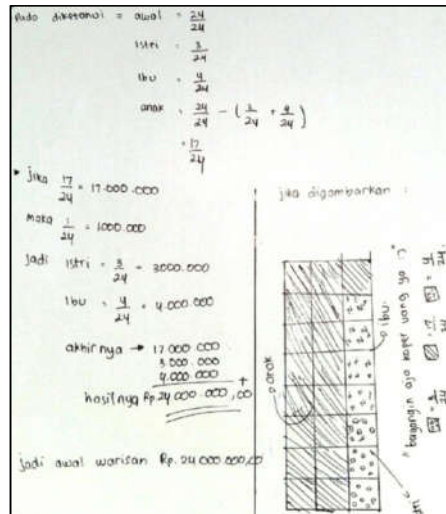 diketahui = awal = 24/24
istri = 3/24
ibu = 4/24
anak = 24/24 - (3/24 + 4/24)
= 17/24
jika 17/24 = 17.000.000
maka 1/24 = 1000.000
jadi istri = 3/24 = 3000.000
ibu = 4/24 = 4.000.000
akhirnya → 17 000 000
3 000.000
4 000 000 +
hasilnya Rp.24 000.000,00
jadi awal warisan Rp. 24 000 000,00
jika digambarkan :
anak
ibu
bayangin aja koper uang ya
= 4/24
= 17/24
= 3/24